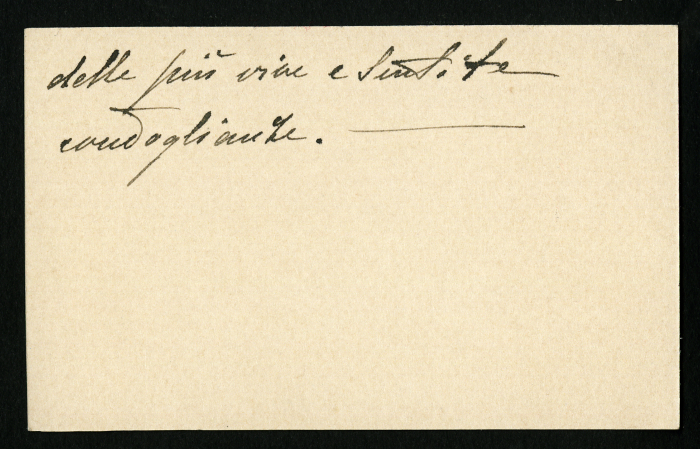 delle più vive e sentite
condoglianze.